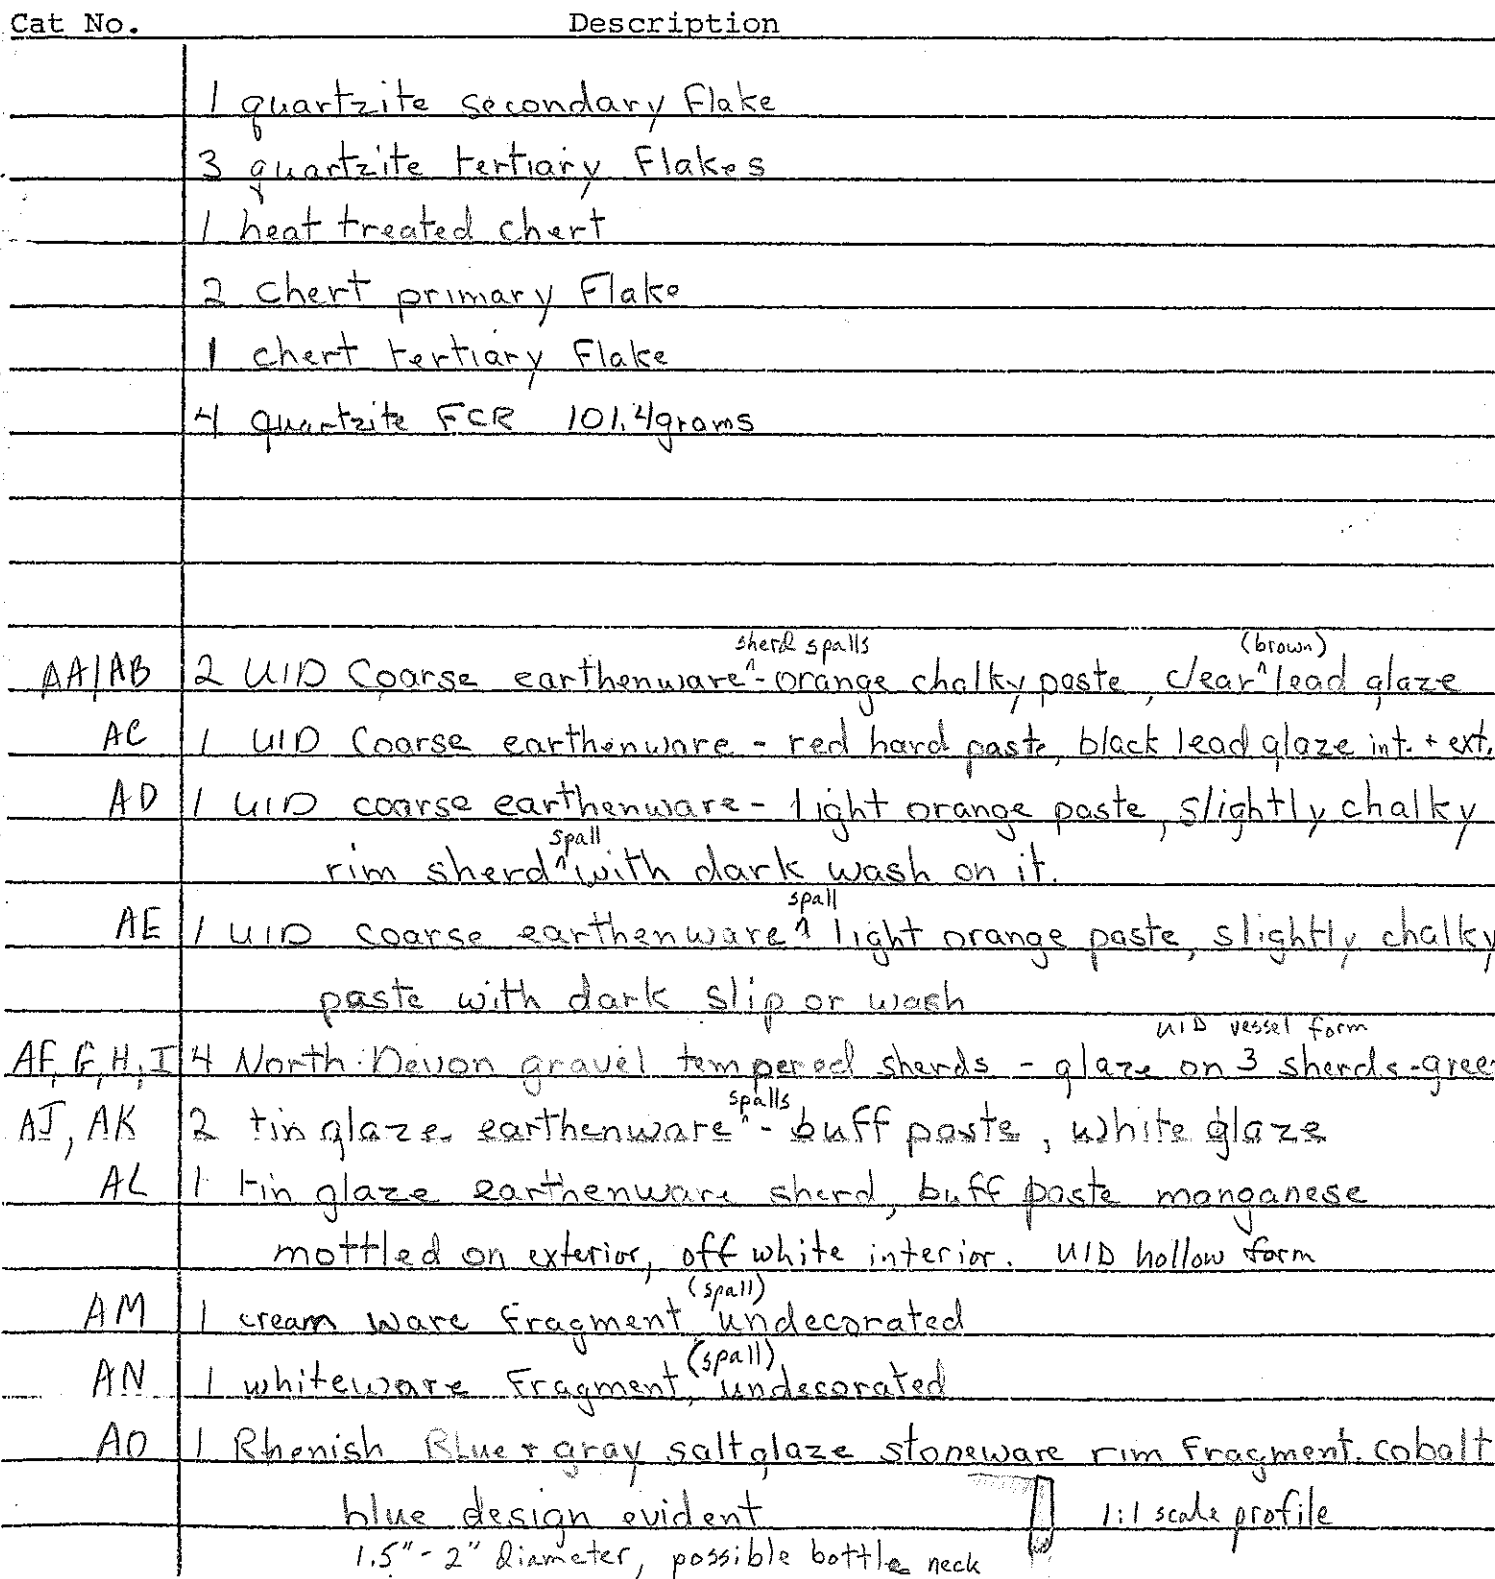 Cat No. Description
1 quartzite secondary Flake
3 quartzite tertiary Flakes
1 heat treated chert
2 Chert primary Flake
1 chert tertiary Flake
4 quartzite FCR 101.4grams
sherd spalls (brown)
AA/AB 2 UID Coarse earthenware ^ - orange chalky paste, clear ^ lead glaze
AC 1 UID Coarse earthenware - red hard paste, black lead glaze int. + ext.
AD 1 UID coarse earthenware - light orange paste, slightly chalky
spall
rim sherd ^ with dark wash on it.
spall
AE 1 UID coarse earthenware ^ light orange paste, slightly chalky
paste with dark slip or wash
UID vessel form
AF, G, H, I 4 North Devon gravel tempered sherds - glaze on 3 sherds - gree
spalls
AJ, AK 2 tin glaze earthenware ^ - buff paste, white glaze
AL 1 tin glaze earthenware sherd, buff paste manganese
mottled on exterior, off white interior. UID hollow form
(spall)
AM 1 cream ware fragment undecorated
(spall)
AN 1 whiteware Fragment, undecorated
AO 1 Rhenish Blue + gray salt glaze stoneware rim Fragment. cobalt
blue design evident 1:1 scale profile
1.5" - 2" diameter, possible bottle neck